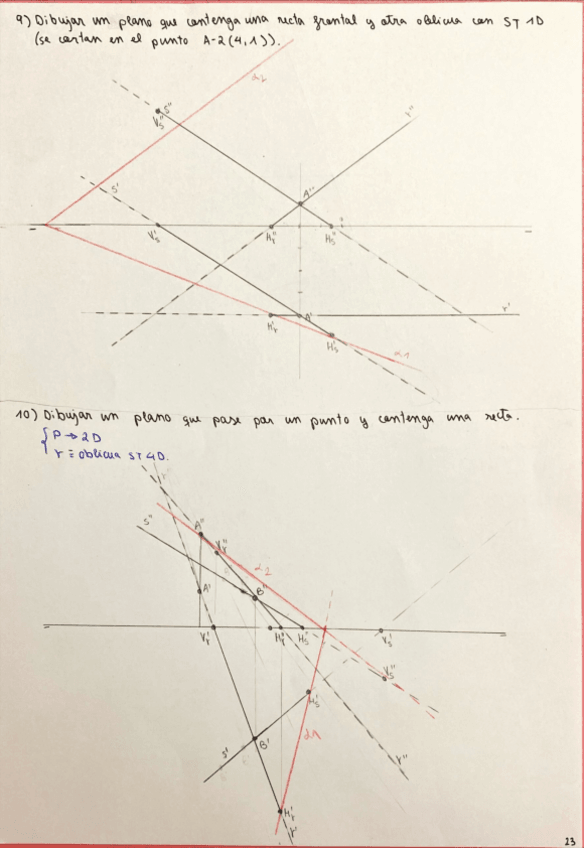 9) Dibujar un plano que contenga una recta frontal y otra oblicua con ST 1D
(se cortan en el punto A-2(4,1)).
α2
S"
Vs"
r"
S'
A"
Vs'
Hr"
Hs"
Hr'
A'
r'
Hs'
α1
10) Dibujar un plano que pase por un punto y contenga una recta.
P → 2D
r ≡ oblicua ST 4D.
S"
A"
Vr"
α2
A'
B"
Vr'
Hr"
Hs"
Vs'
Vs"
Hs'
α1
S'
B'
r"
Hr'
r'
23